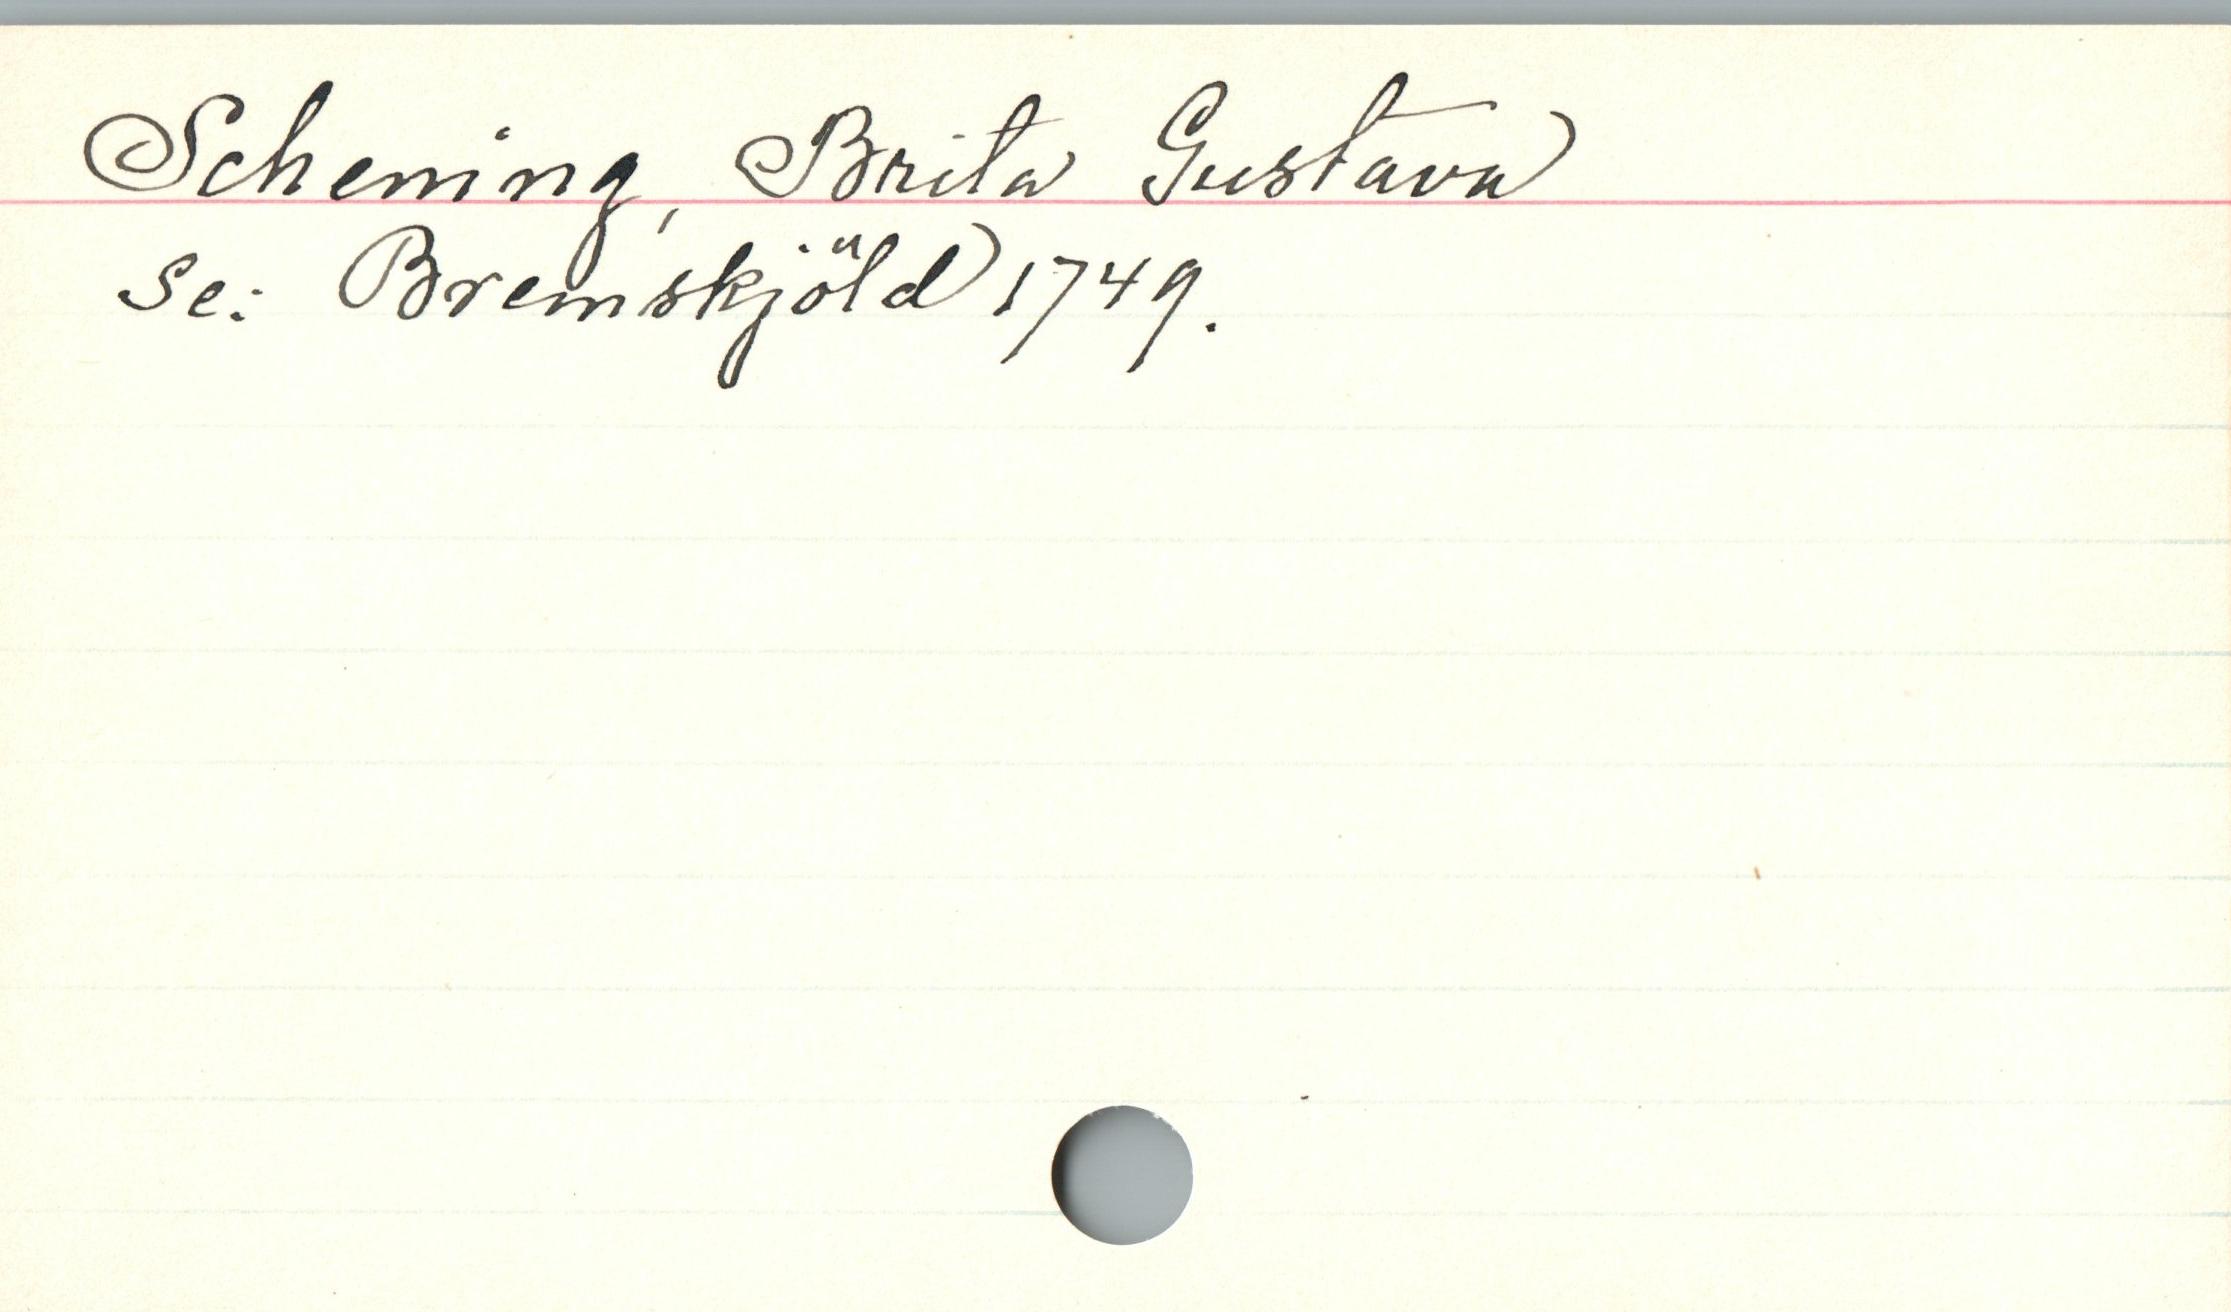 Schening, Brita Gustava
se: Bremskjöld 1749.